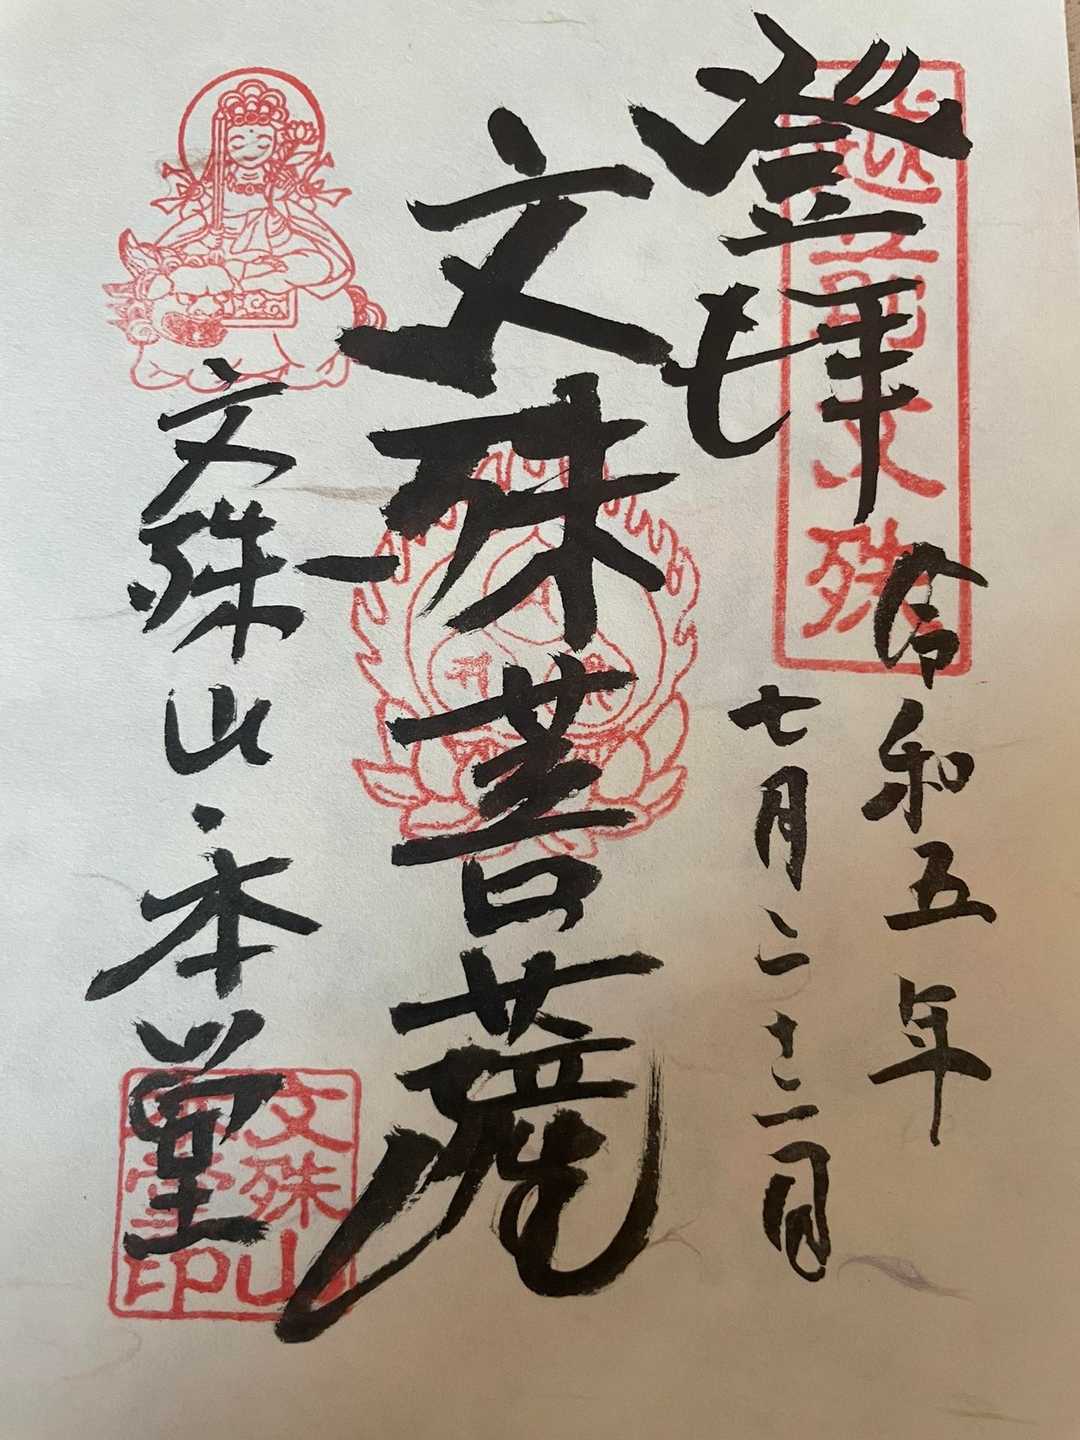 登拝
越
文殊
令和五年
七月二十二日
文殊菩薩
文殊山本堂
文殊山
本堂印